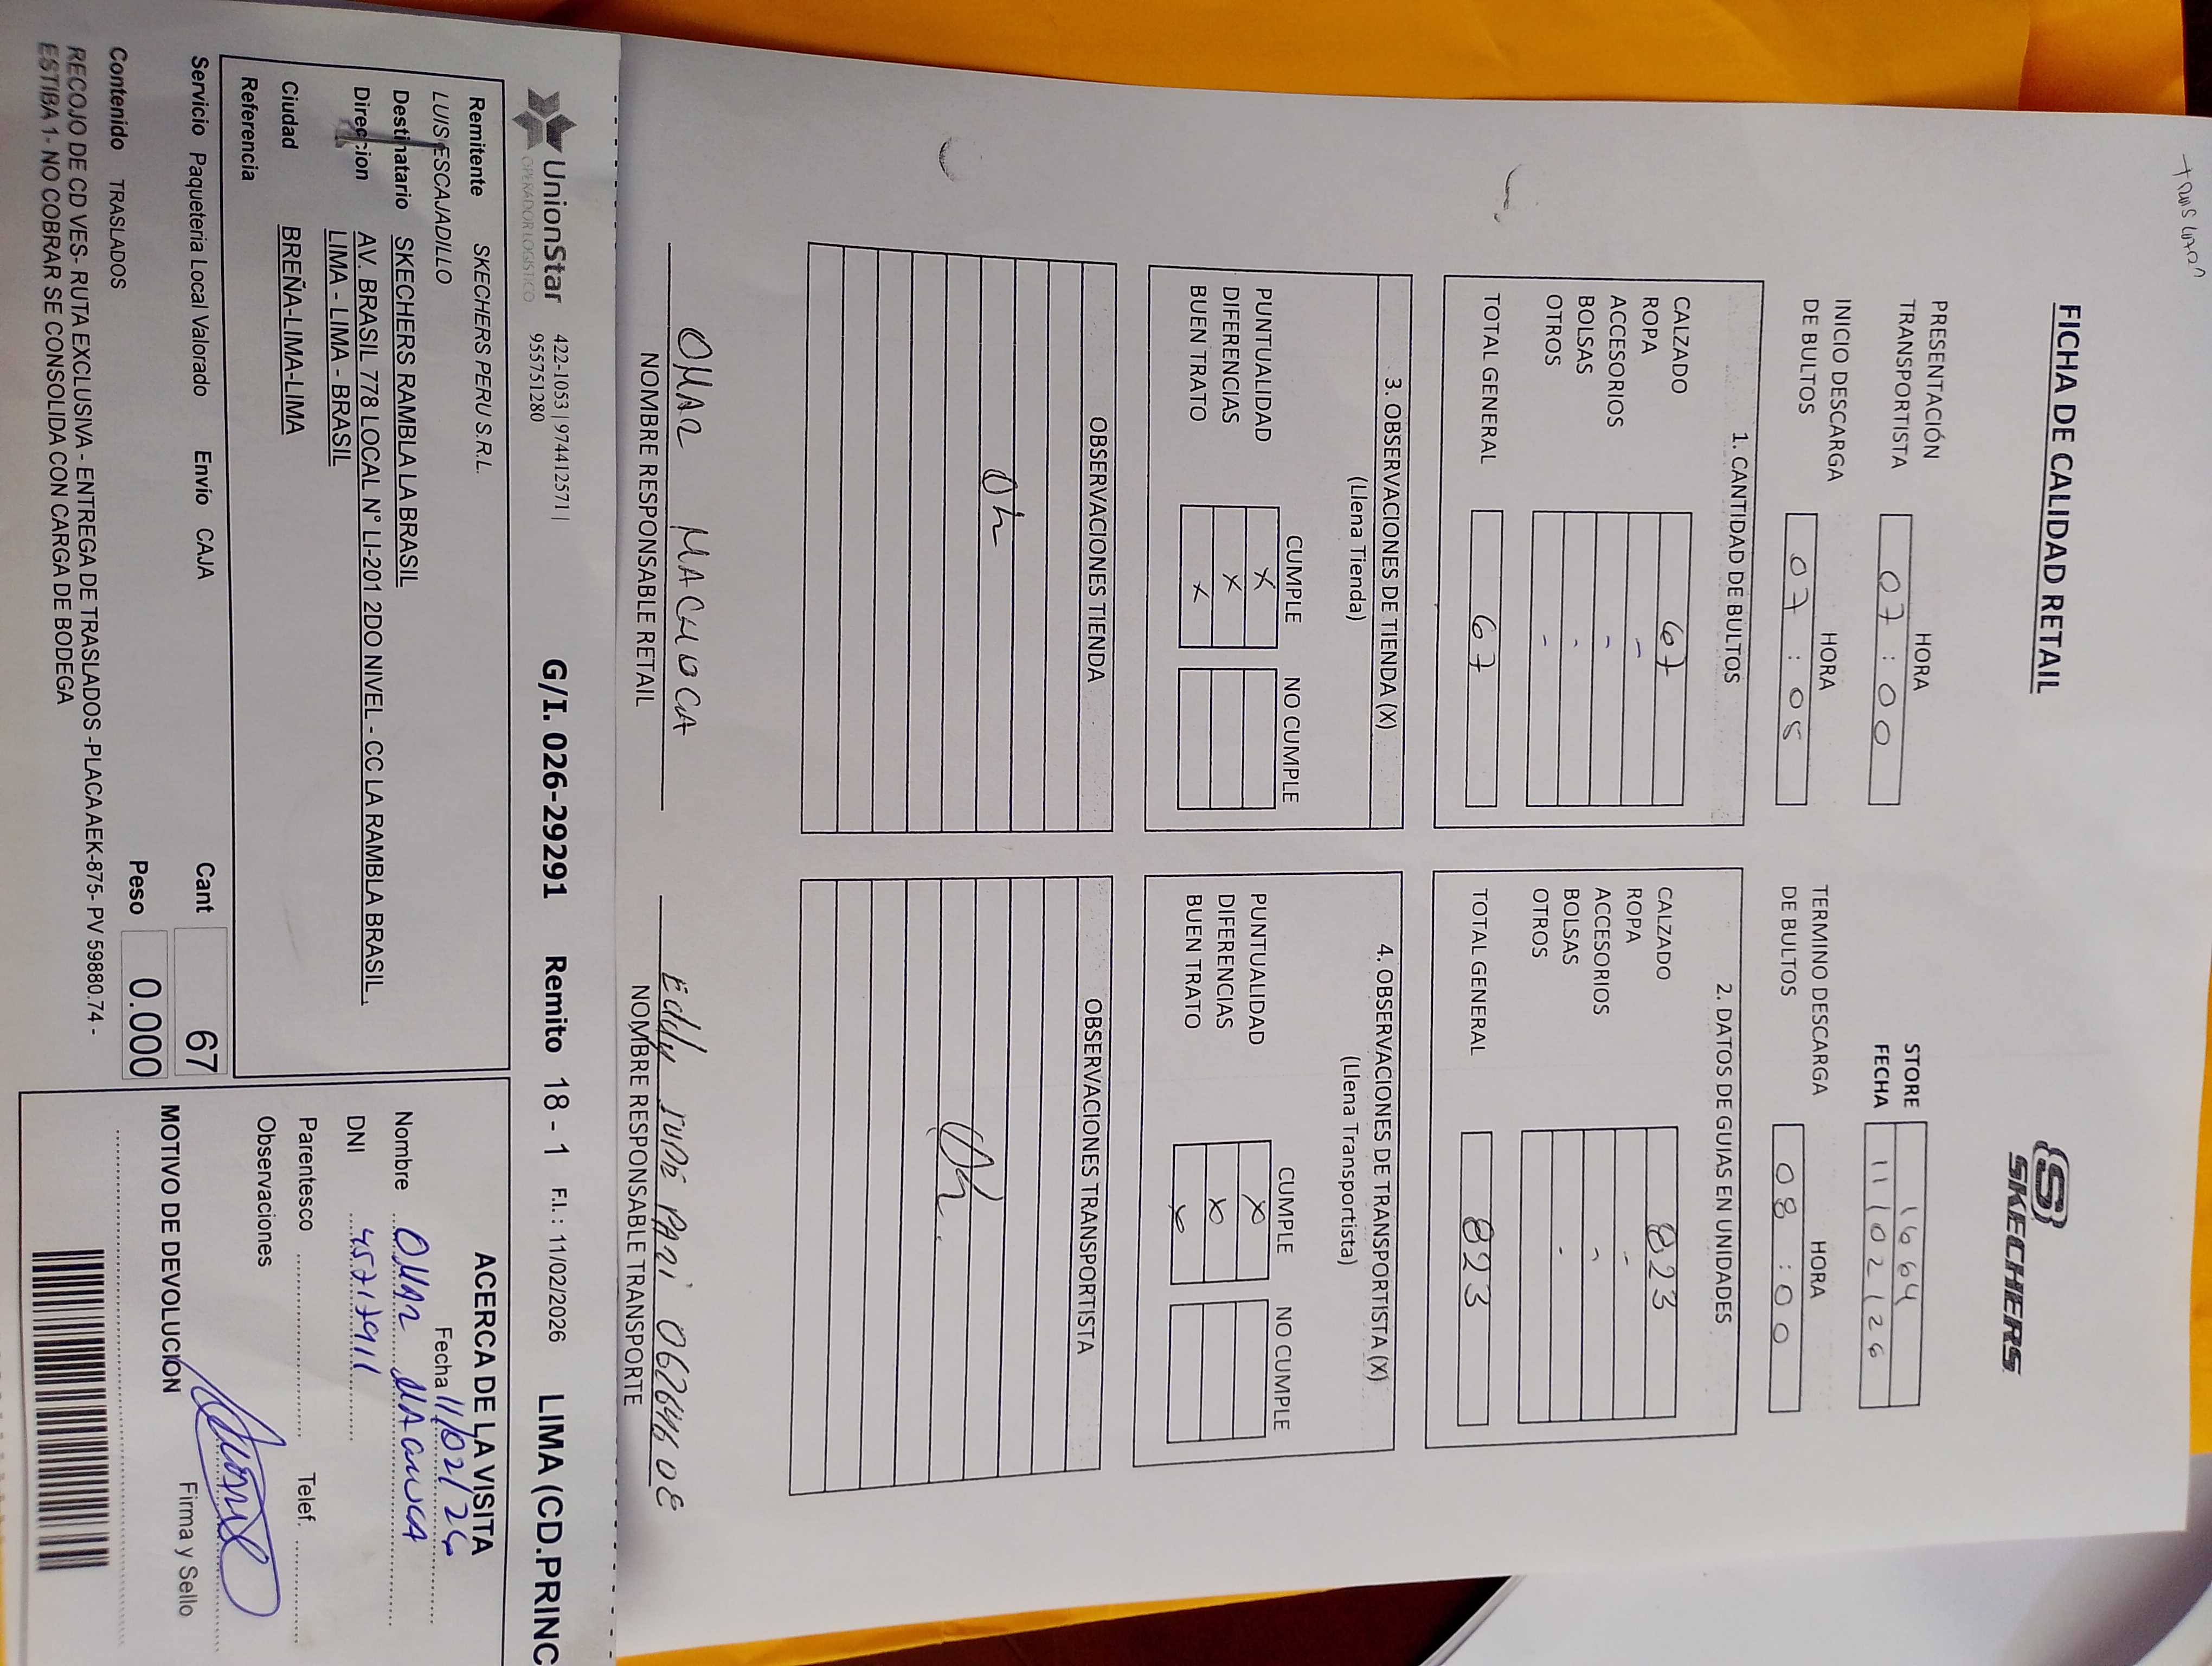 FICHA DE CALIDAD RETAIL
SKECHERS
STORE 1664
FECHA 11/02/26
HORA
PRESENTACIÓN TRANSPORTISTA 07:00
HORA
INICIO DESCARGA DE BULTOS 07:05
HORA
TERMINO DESCARGA DE BULTOS 08:00
1. CANTIDAD DE BULTOS
CALZADO 67
ROPA -
ACCESORIOS -
BOLSAS -
OTROS -
TOTAL GENERAL 67
2. DATOS DE GUIAS EN UNIDADES
CALZADO 823
ROPA -
ACCESORIOS -
BOLSAS -
OTROS
TOTAL GENERAL 823
3. OBSERVACIONES DE TIENDA (X)
(Llena Tienda)
CUMPLE NO CUMPLE
PUNTUALIDAD X
DIFERENCIAS X
BUEN TRATO X
4. OBSERVACIONES DE TRANSPORTISTA (X)
(Llena Transportista)
CUMPLE NO CUMPLE
PUNTUALIDAD X
DIFERENCIAS X
BUEN TRATO X
OBSERVACIONES TIENDA
OBSERVACIONES TRANSPORTISTA
OMAR MACHUCA
NOMBRE RESPONSABLE RETAIL
Eddy
NOMBRE RESPONSABLE TRANSPORTE
UnionStar
OPERADOR LOGISTICO
422-1053 | 974412571 |
955751280
G/I. 026-29291 Remito 18 - 1 F.I. : 11/02/2026 LIMA (CD.PRINC
Remitente SKECHERS PERU S.R.L.
LUIS ESCAJADILLO
Destinatario SKECHERS RAMBLA LA BRASIL
Direccion AV. BRASIL 778 LOCAL N° LI-201 2DO NIVEL - CC LA RAMBLA BRASIL.
LIMA - LIMA - BRASIL
Ciudad BREÑA-LIMA-LIMA
Referencia
Servicio Paqueteria Local Valorado Envío CAJA Cant 67
Peso 0.000
Contenido TRASLADOS
RECOJO DE CD VES- RUTA EXCLUSIVA - ENTREGA DE TRASLADOS -PLACA AEK-875- PV 59880.74 -
ESTIBA 1- NO COBRAR SE CONSOLIDA CON CARGA DE BODEGA
ACERCA DE LA VISITA
Fecha 11/02/26
Nombre OMAR MACHUCA
DNI 45217911
Parentesco Telef.
Observaciones
MOTIVO DE DEVOLUCION
Firma y Sello